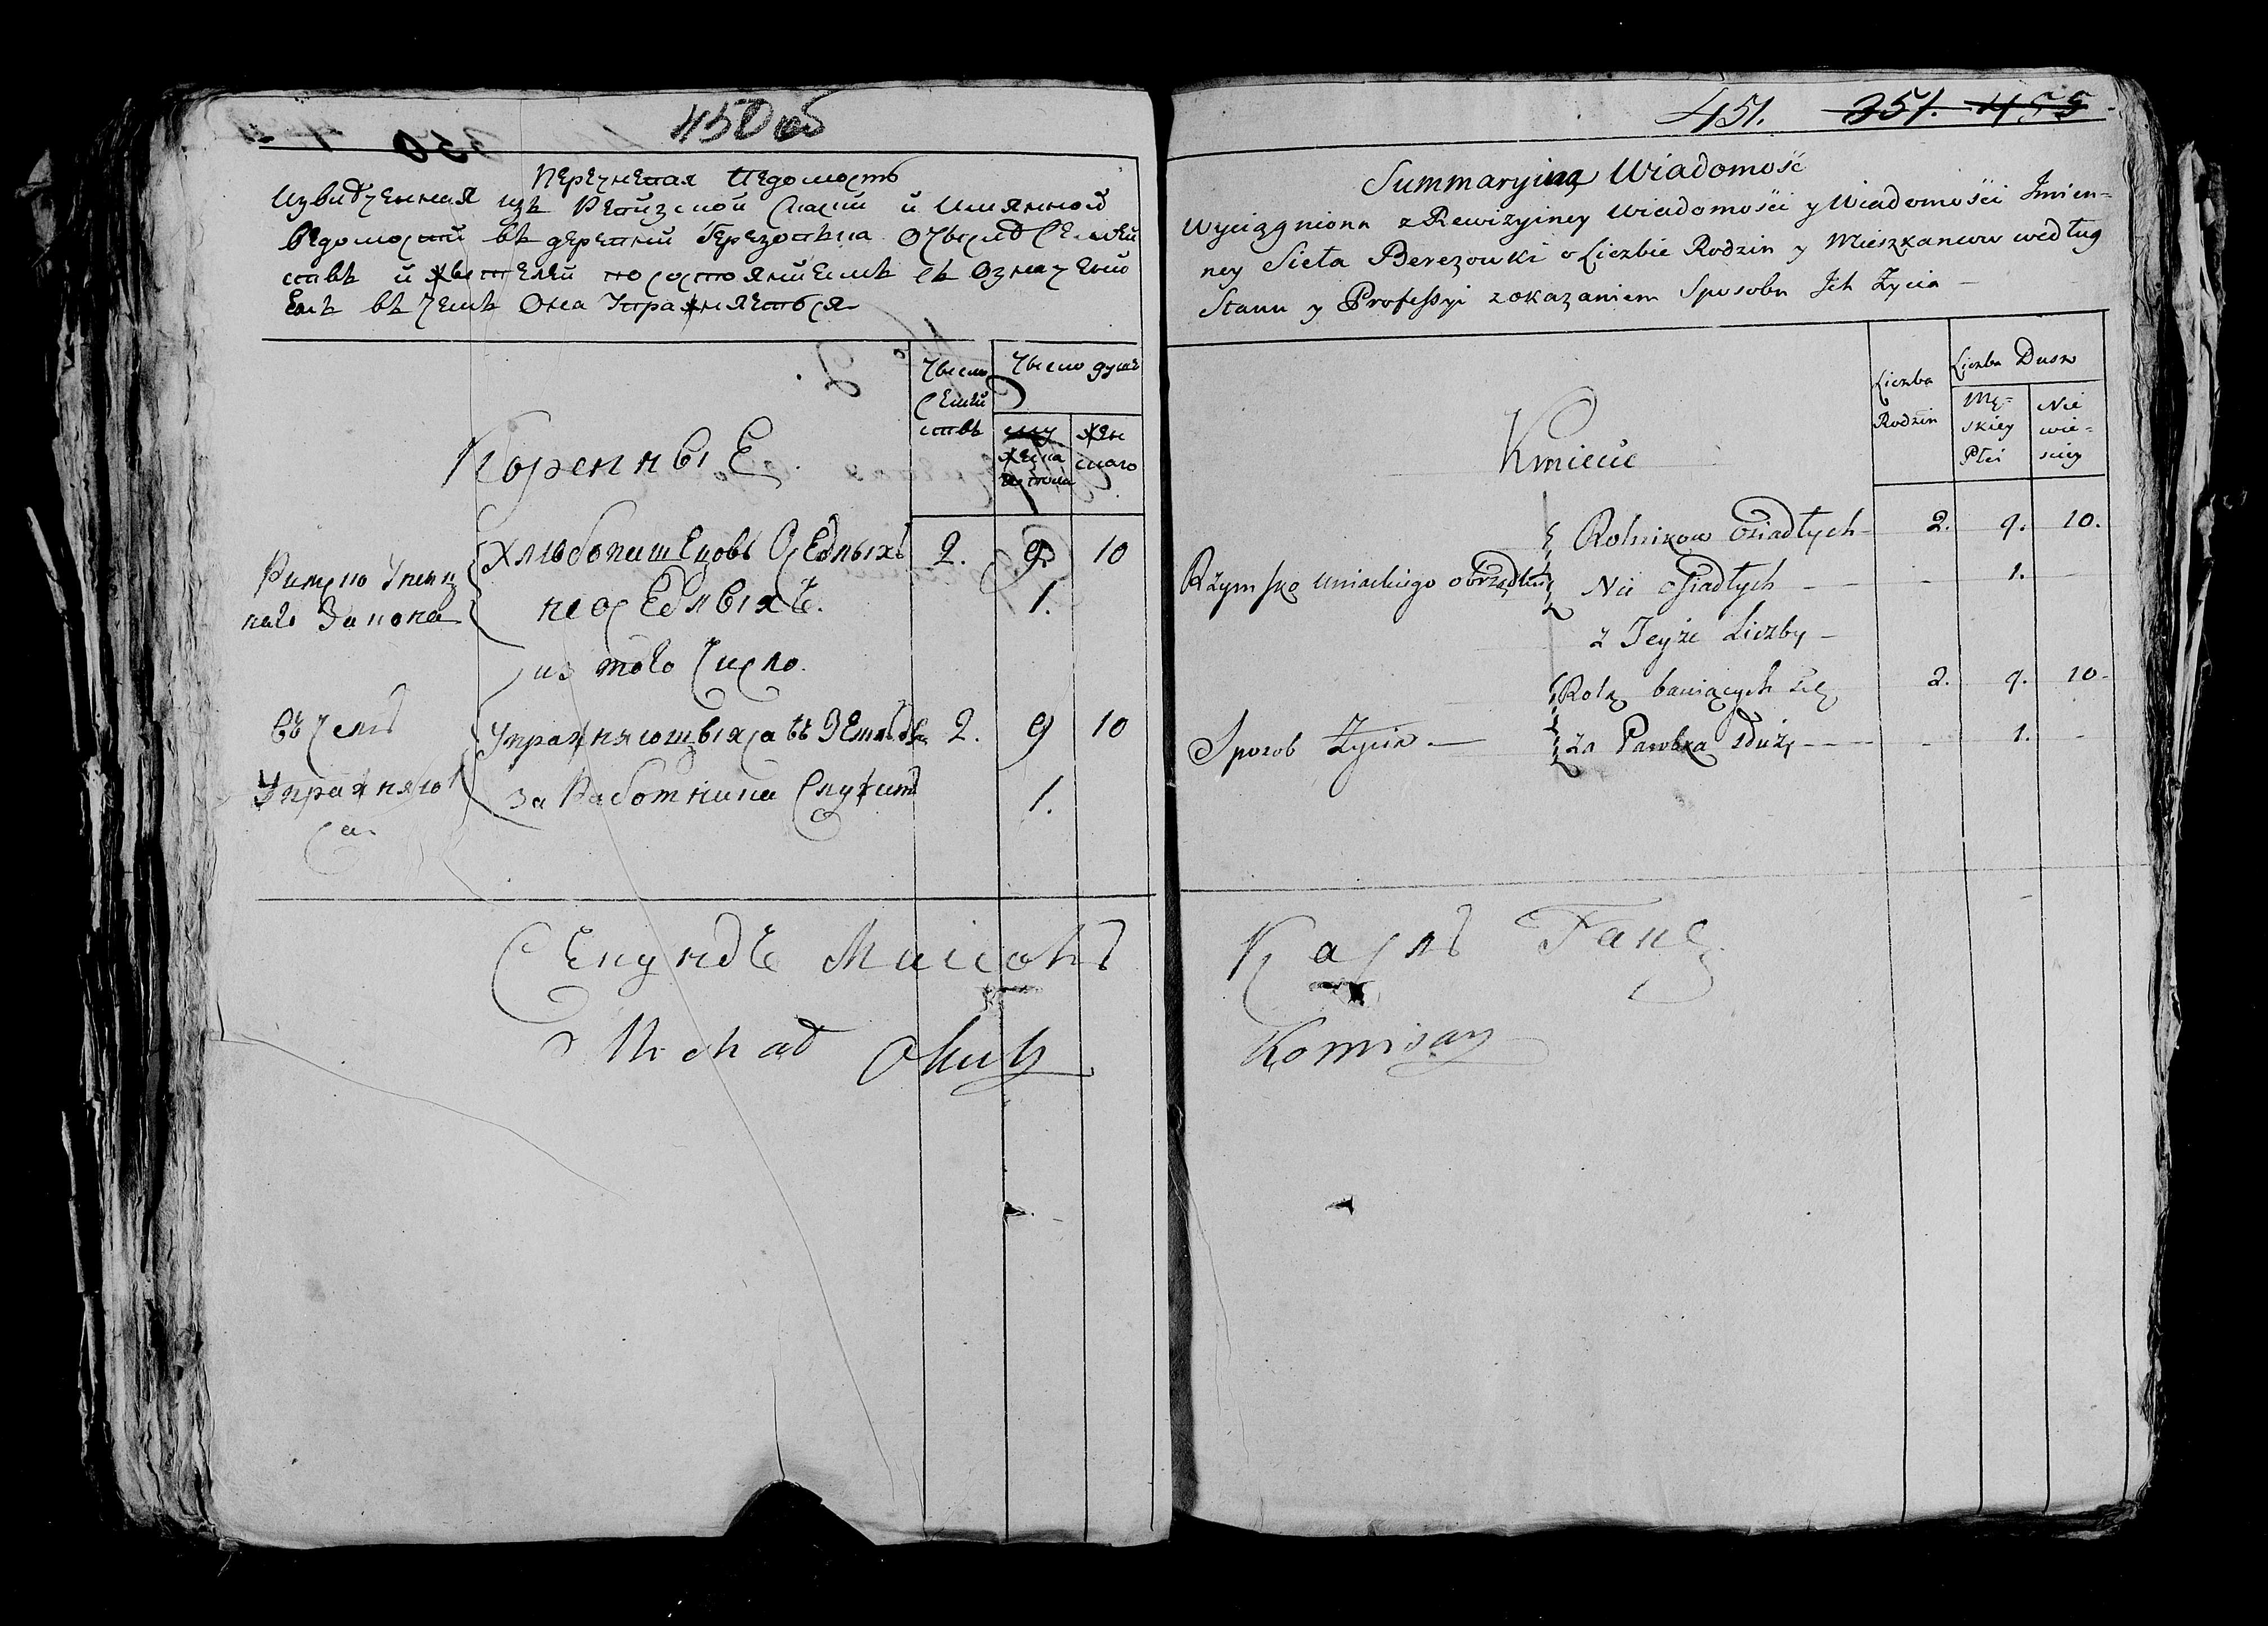 450 об
350
Перечневая Ведомость
Извлеченная изъ Ревизской Скаски и Имянной
ведомости въ деревни Березовька О числе Семей
ствъ и жытелей по состоянией съ Означени
емъ въ чемъ Она Упражняеться
Число
Семей
ствъ
Число душъ
жен
скаго
Коренные
Римско Униц
каго Закона
Хлебопашецовъ Оседлыхъ 2. 9. 10
не оседлыхъ. 1.
из того Число.
въ чемъ
Упражняют
ся.
Упражняющыхса въ Земле 2. 9 10
за Работника Служит 1.
Секундъ Маiоръ
Michał
451. 351. 455
Summaryina Wiadomość
Wyciągniona z Rewizyiney Wiadomości y Wiadomości Jmien-
ney Sieła Berezowki o Liczbie Rodzin y Mieszkancow według
Stanu y Professyi z okazaniem Sposobu Jch Życia —
Liczba
Rodzin
Liczba Dusz
Mę-
skiey
Płci
Nie
wie-
sciey
Kmiecie
Rżymsko Uniackiego obrządku
Rolnikow Osiadłych — 2. 9. 10.
Nie Osiadłych — - 1. -
z Teyże Liczby —
Rolą bawiących się 2. 9. 10-
Sposob Życia —
za Parobka służy - - - - - 1. -
Карлъ Ганс
Komisarz